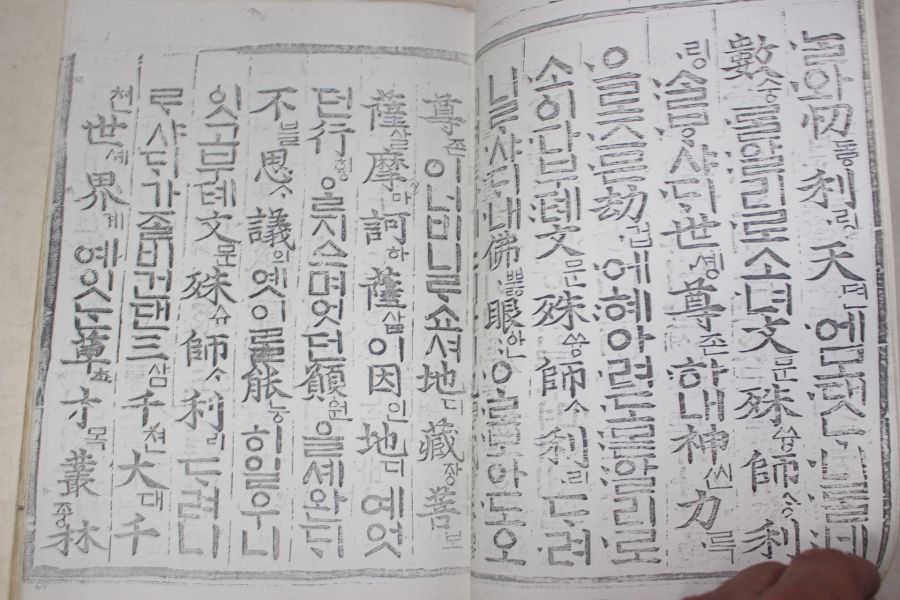 ᄂᆞᆯ와忉동利링天텬에모댓ᄂᆞ니ᄅᆞᆯ네
數숭를알리로소녀文문殊쓩師ᄉᆞᆼ利
링ᄉᆞᆯᄫᆞ샤ᄃᆡ世솅尊존하내神씬力륵
으로즈믄劫겁에혜아려도몯알리로
소이다부톄文문殊쓩師ᄉᆞ利리ᄃᆞ려
니ᄅᆞ샤ᄃᆡ내佛뿛眼안ᄋᆞ로보아도오
尊존이너비니ᄅᆞ쇼셔地디藏장菩보
薩살摩마訶하薩살이因인地디예엇
던行ᄒᆡᆼ을지으며엇던願원을셰완ᄃᆡ
不불思ᄉᆞ議의옛이ᄅᆞᆯ能능히일우니
잇고부톄文문殊슈師ᄉᆞ利리ᄃᆞ려니
ᄅᆞ샤ᄃᆡ가ᄌᆞᆯ비건댄三삼千쳔大대千
쳔世셰界계예잇ᄂᆞᆫ草초木목叢총林